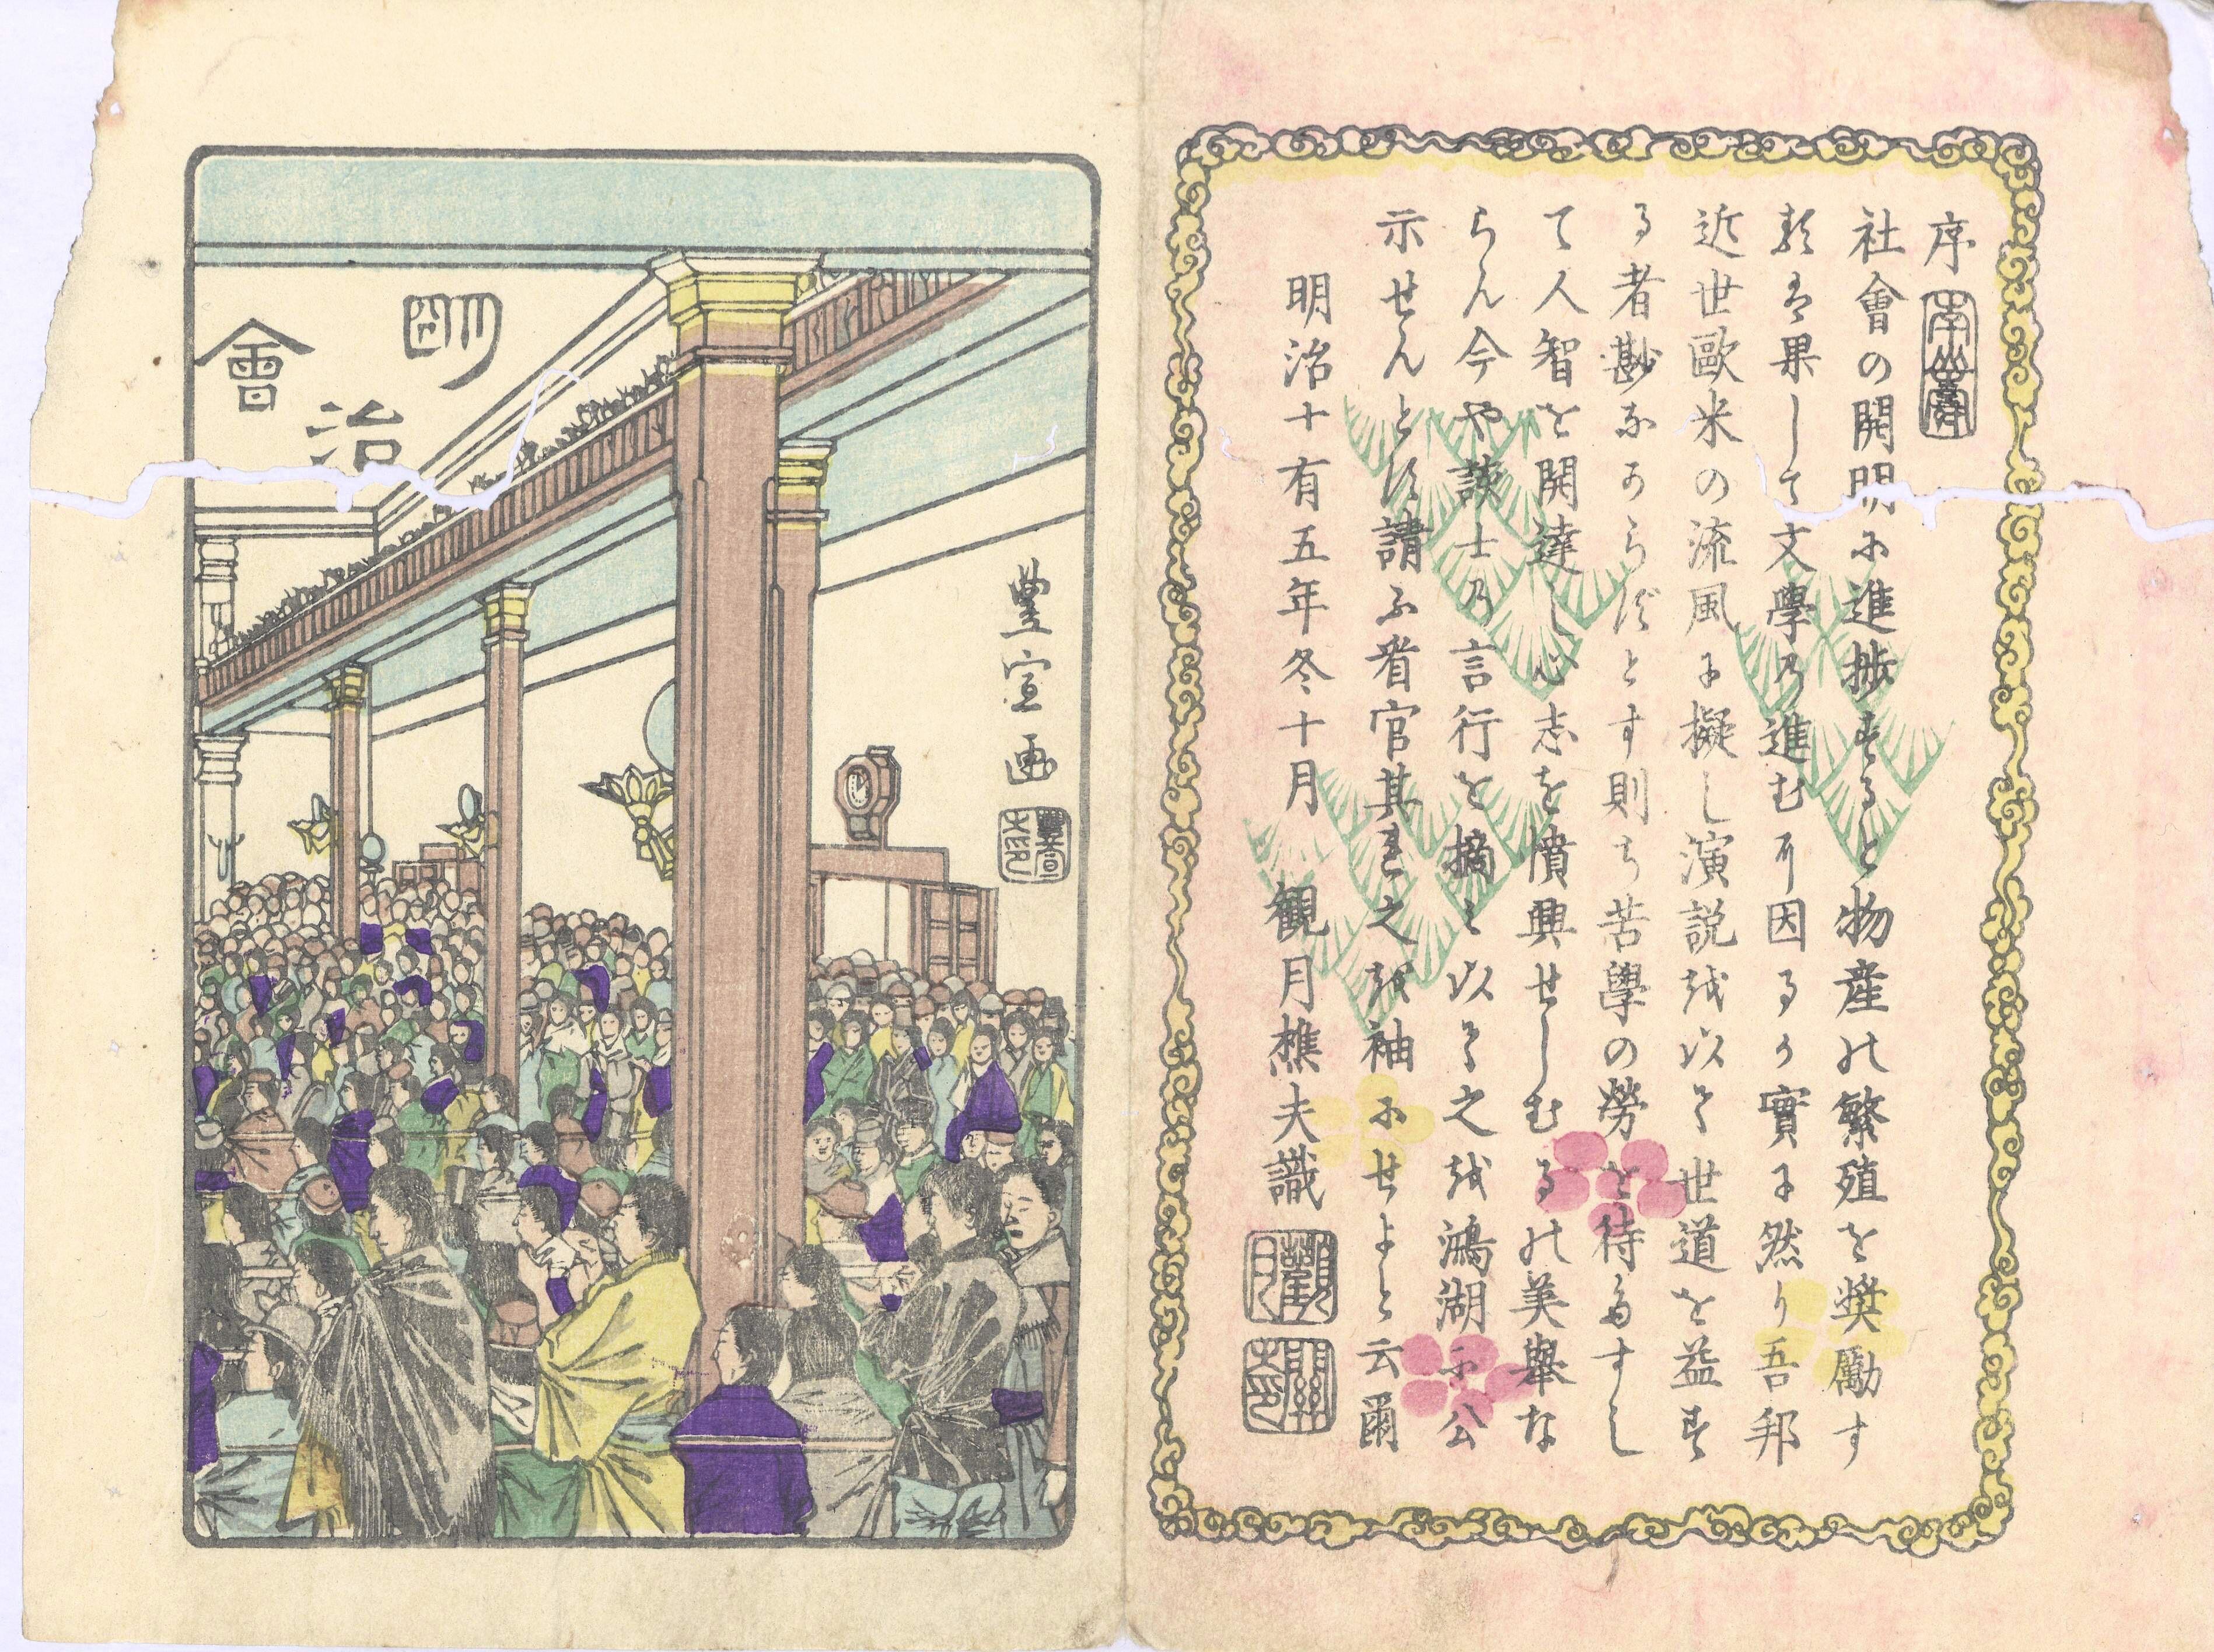 序
社會の開明に進捗するや物産の繁殖を奨勵す
果して文學の進む所因るか實に然り吾邦
近世歐米の流風に擬し演説を以て世道を益す
る者尠なからずとす則ち苦學の勞を待たずし
て人智を開達し心志を憤興せしむるの美舉な
らん今や談士の言行を摘て以て之を鴻湖に公
示せんとす請ふ看官其れ之を袖にせよと云爾
明治十有五年冬十月 観月樵夫識
觀月
明治會
豊宣画